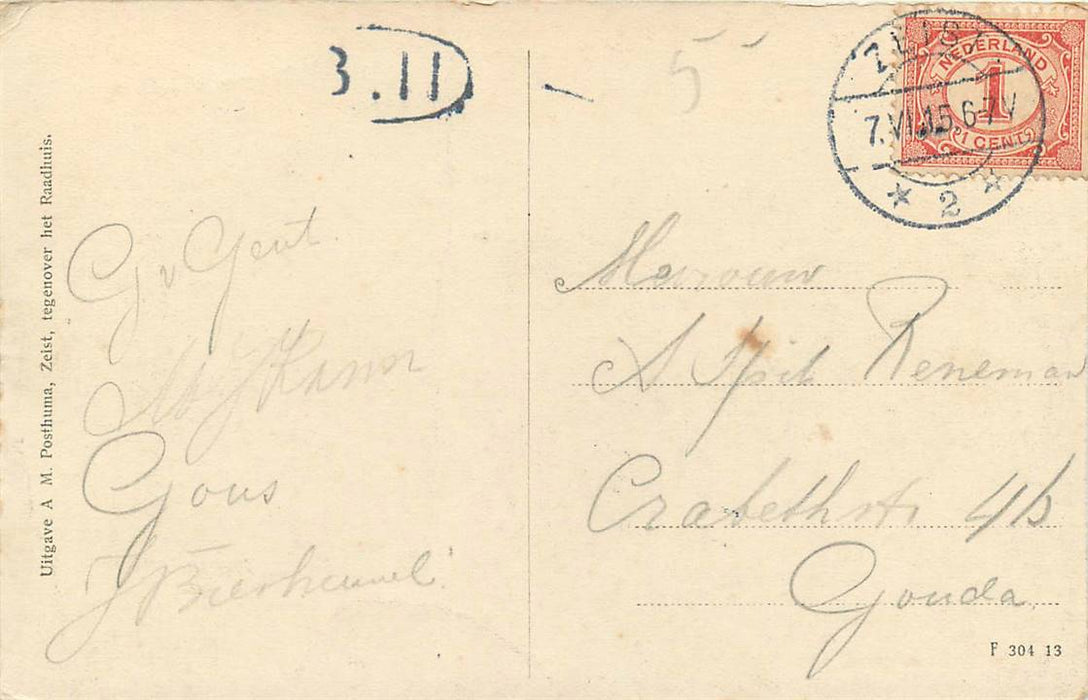 3.11
5
ZEIST
7.VI.15 6-7V
2
NEDERLAND
1
1 CENT
G v Gent
Gous
J Bierhemel
Mevrouw
A Spit Reneman
Crabethstr 4b
Gouda
Uitgave A M. Posthuma, Zeist, tegenover het Raadhuis.
F 304 13